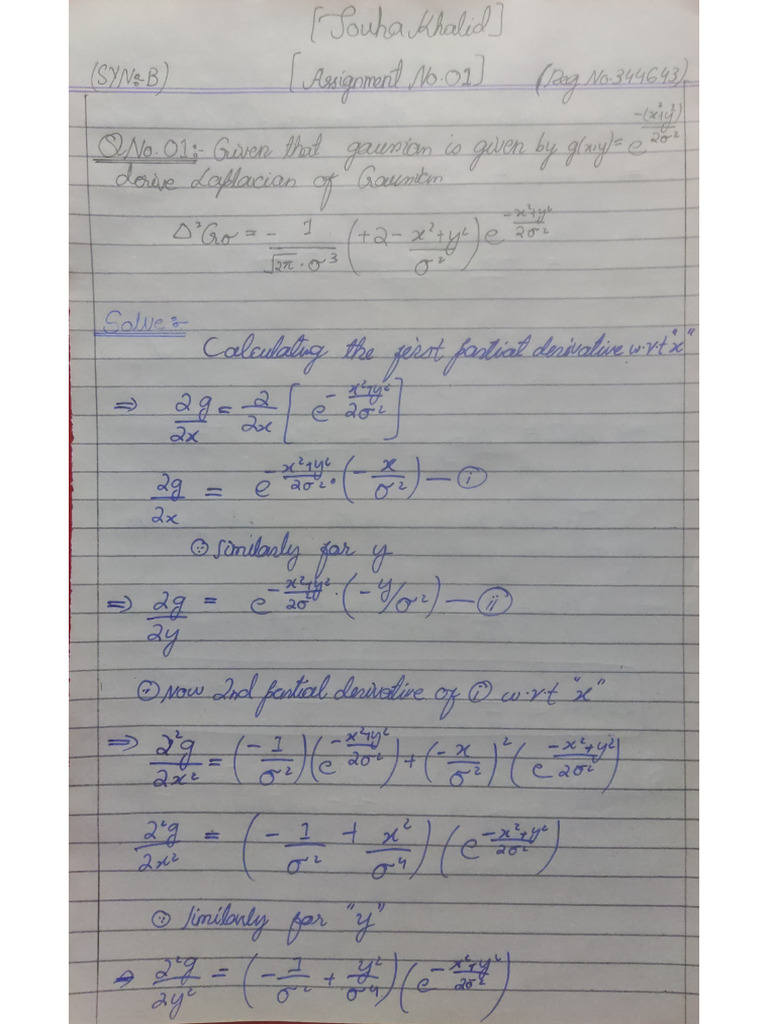 [Jouha Khalid]
(SYN:-B) [Assignment No.01] (Reg No.344643)
Q No.01:- Given that gaussian is given by g(x,y) = e^{-(x²+y²)/2σ²}
derive Laplacian of Gaussian
Δ²Gσ = -1/(√2π · σ³) (+2 - (x²+y²)/σ²) e^{-(x²+y²)/2σ²}
Solve:-
Calculating the first partial derivative w.r.t "x"
⇒ ∂g/∂x = ∂/∂x [e^{-(x²+y²)/2σ²}]
∂g/∂x = e^{-(x²+y²)/2σ²} · (-x/σ²) — (i)
⊙ Similarly for y
⇒ ∂g/∂y = e^{-(x²+y²)/2σ²} · (-y/σ²) — (ii)
⊙ Now 2nd partial derivative of (i) w.r.t "x"
⇒ ∂²g/∂x² = (-1/σ²)(e^{-(x²+y²)/2σ²}) + (-x/σ²)² (e^{-(x²+y²)/2σ²})
∂²g/∂x² = (-1/σ² + x²/σ⁴)(e^{-(x²+y²)/2σ²})
⊙ Similarly for "y"
→ ∂²g/∂y² = (-1/σ² + y²/σ⁴)(e^{-(x²+y²)/2σ²})